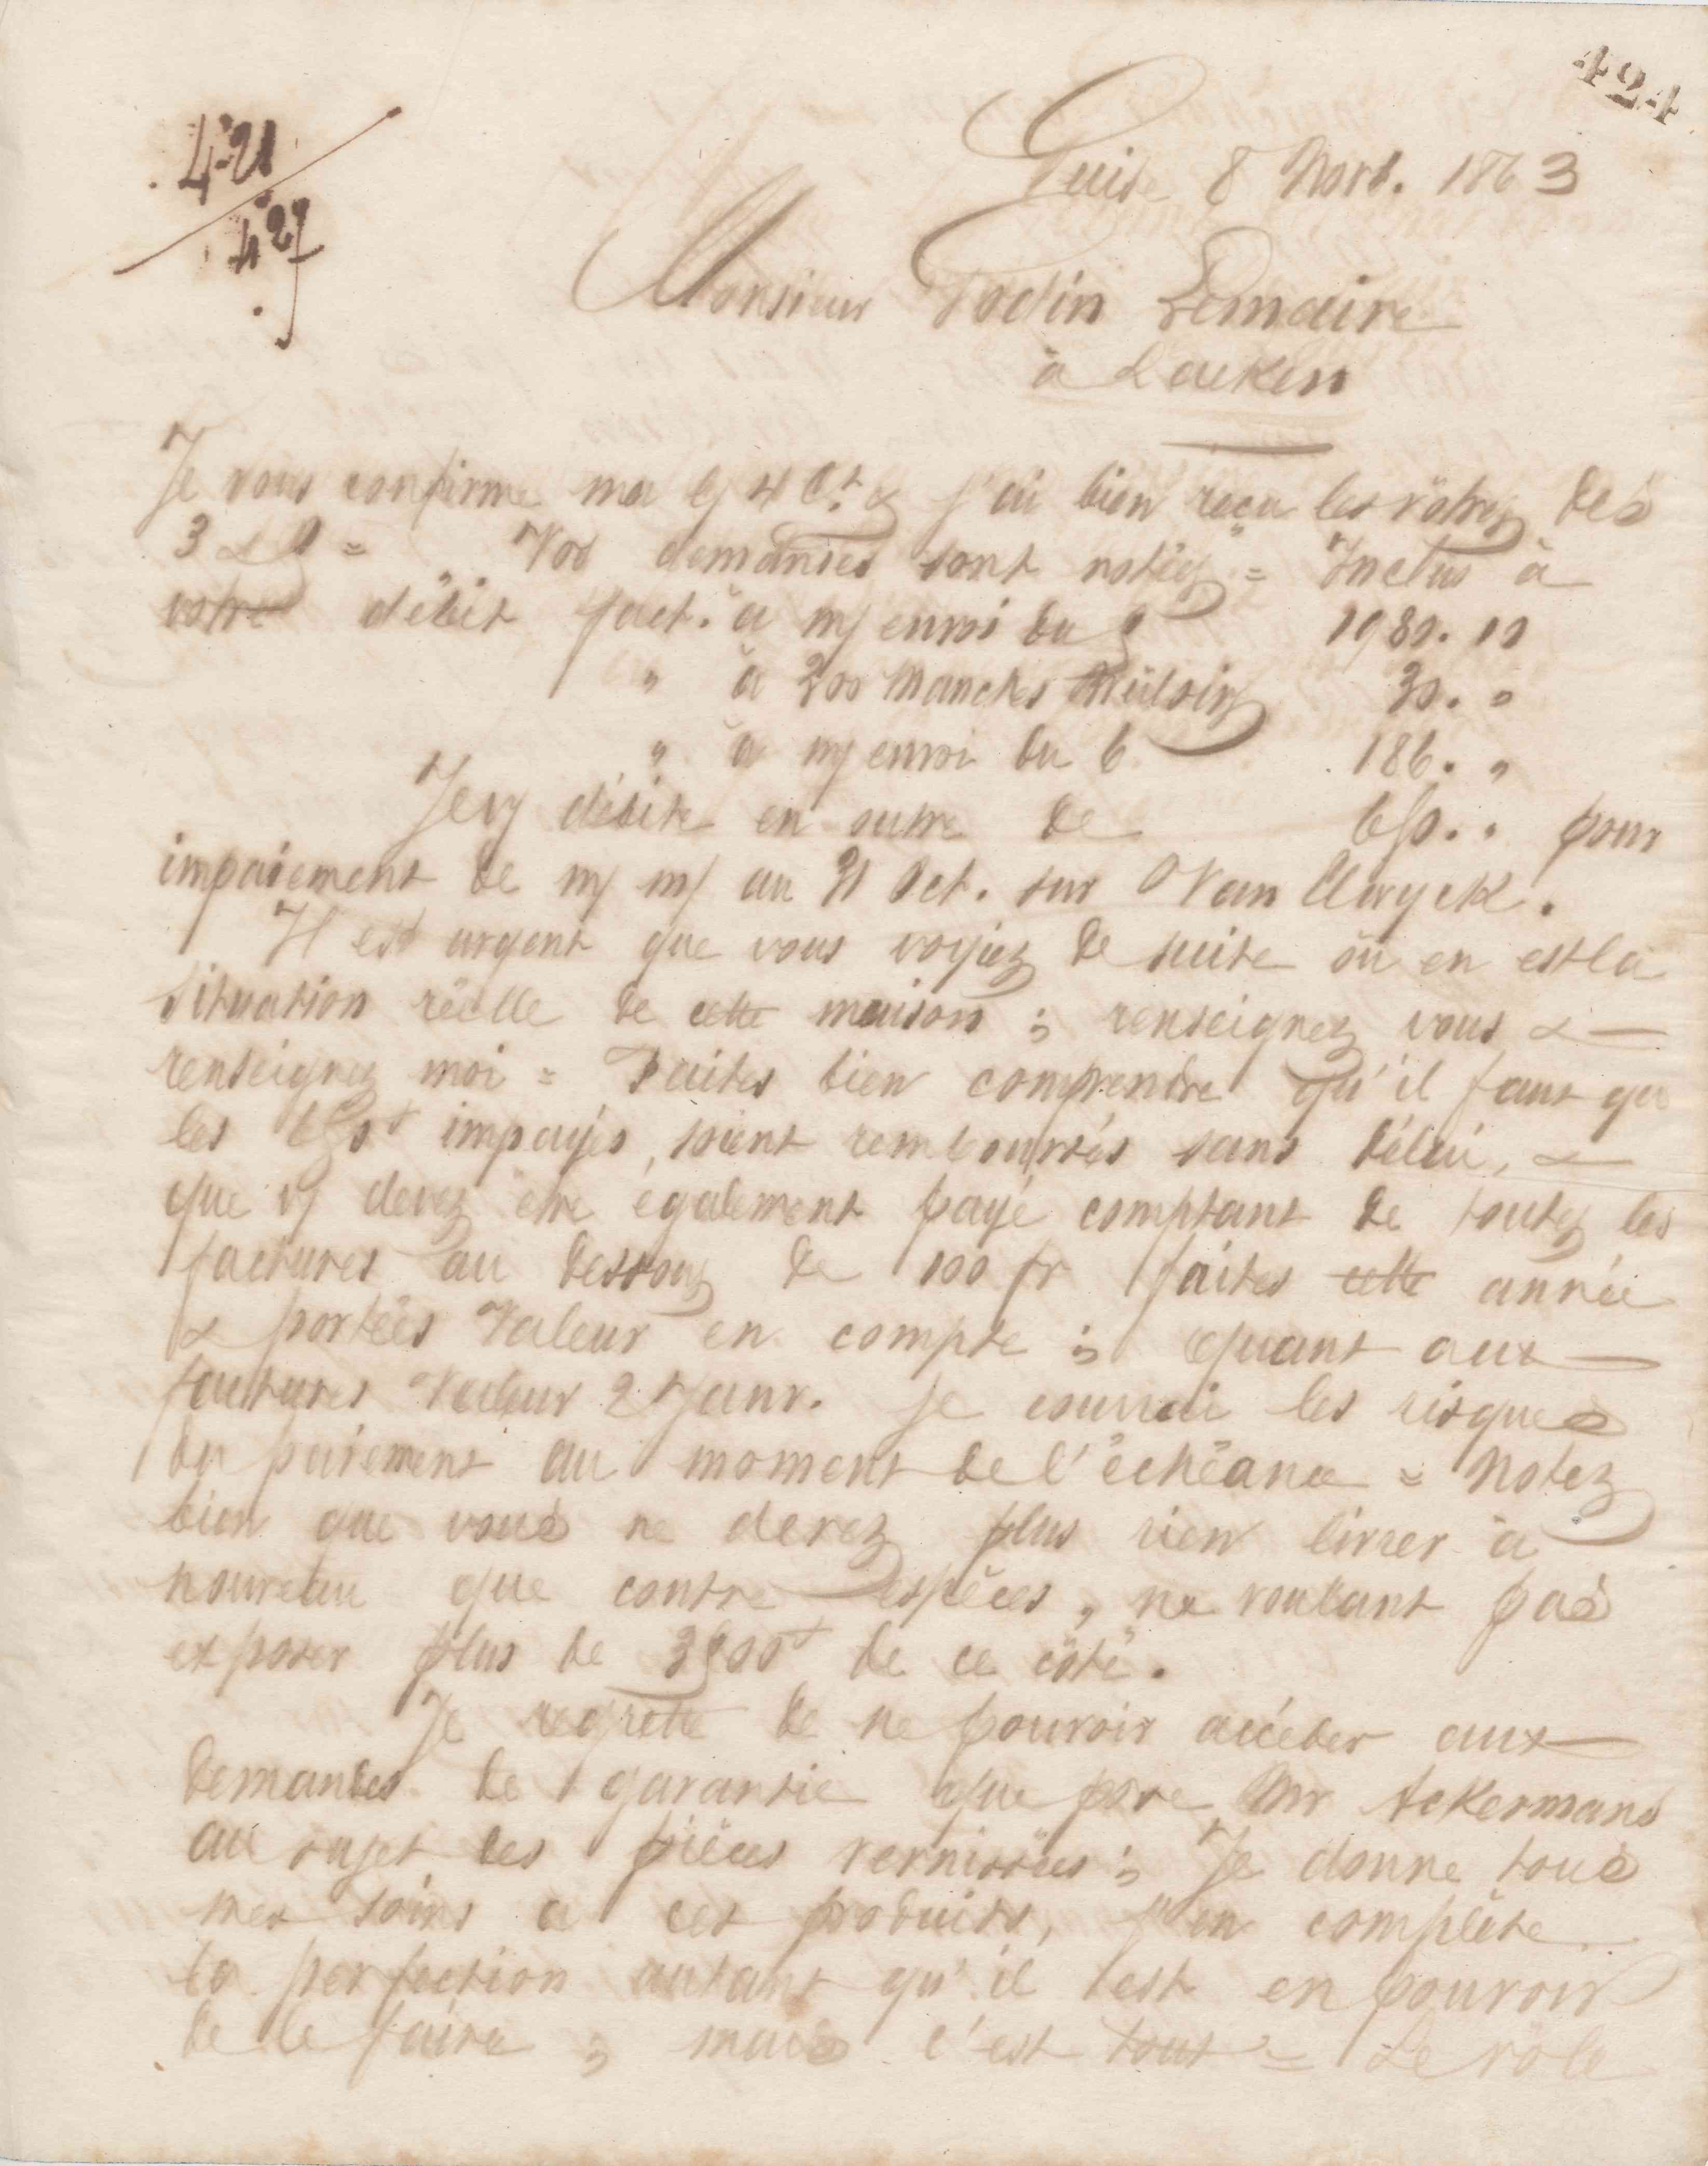 424
421
427
Guise 8 Novb. 1863
Monsieur Godin Lemaire
à Laeken
Je vous confirme ma du 4 Ct. & j'ai bien reçu les vôtres des
3 & = Vos demandes sont notées = Inclus à
votre débit fact. à m/ envoi du 1980.
" à 200 Manches 30. "
" à m/ envoi du 6 186. "
Je v/ débite en outre de 650. " pour
impaiement de m/ m/ au 31 Oct. sur Van
Il est urgent que vous voyiez de suite où en est la
situation réelle de cette maison ; renseignez vous &
renseignez moi = Faites bien comprendre qu'il faut que
les 650f impayés, soient remboursés sans délai, &
que v/ devez être également payé comptant de toutes les
factures au dessous de 100 fr faites cette année
& portées Valeur en compte ; quant aux
factures Valeur 2 Janv. je courrai les risques
du paiement au moment de l'échéance = Notez
bien que vous ne devez plus rien livrer à
nouveau que contre espèces, ne voulant pas
exposer plus de 3500f de ce côté.
Je regrette de ne pouvoir accéder aux
demandes de garantie que pose Mr Ackermans
au sujet des pièces vernissées ; Je donne tous
mes soins à ces produits, j'en complète
la perfection autant qu'il est en pouvoir
de le faire ; mais c'est tout = Le rôle